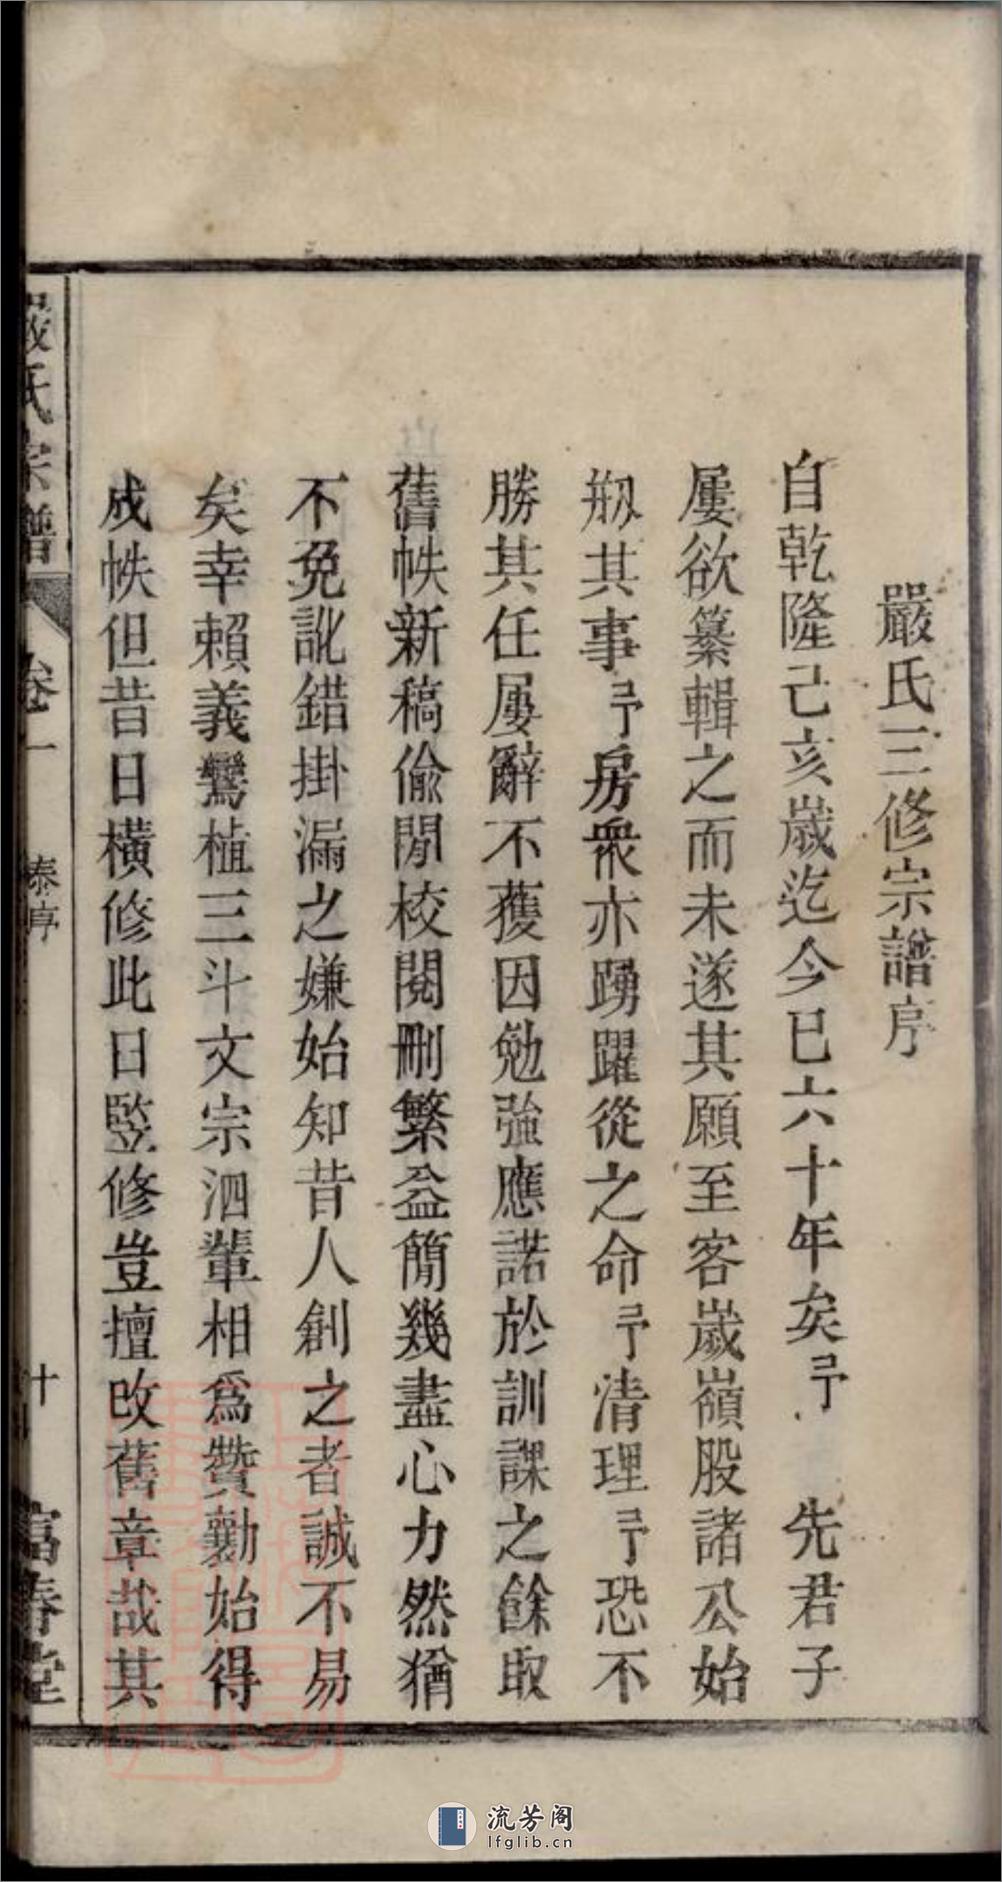 嚴氏三修宗譜序
自乾隆己亥歲迄今已六十年矣予先君子
屢欲纂輯之而未遂其願至客歲嶺股諸公始
剏其事予房衆亦踴躍從之命予清理予恐不
勝其任屢辭不獲因勉強應諾於訓課之餘取
舊帙新稿偷閒校閱刪繁益簡幾盡心力然猶
不免訛錯掛漏之嫌始知昔人創之者誠不易
矣幸賴義鸞植三斗文宗泗輩相爲贊勷始得
成帙但昔日橫修此日竪修豈擅改舊章哉其
嚴氏宗譜
卷一
泰序
十
富春堂
流芳阁
lfglib.cn